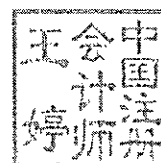 中国注册
会计师
王婷